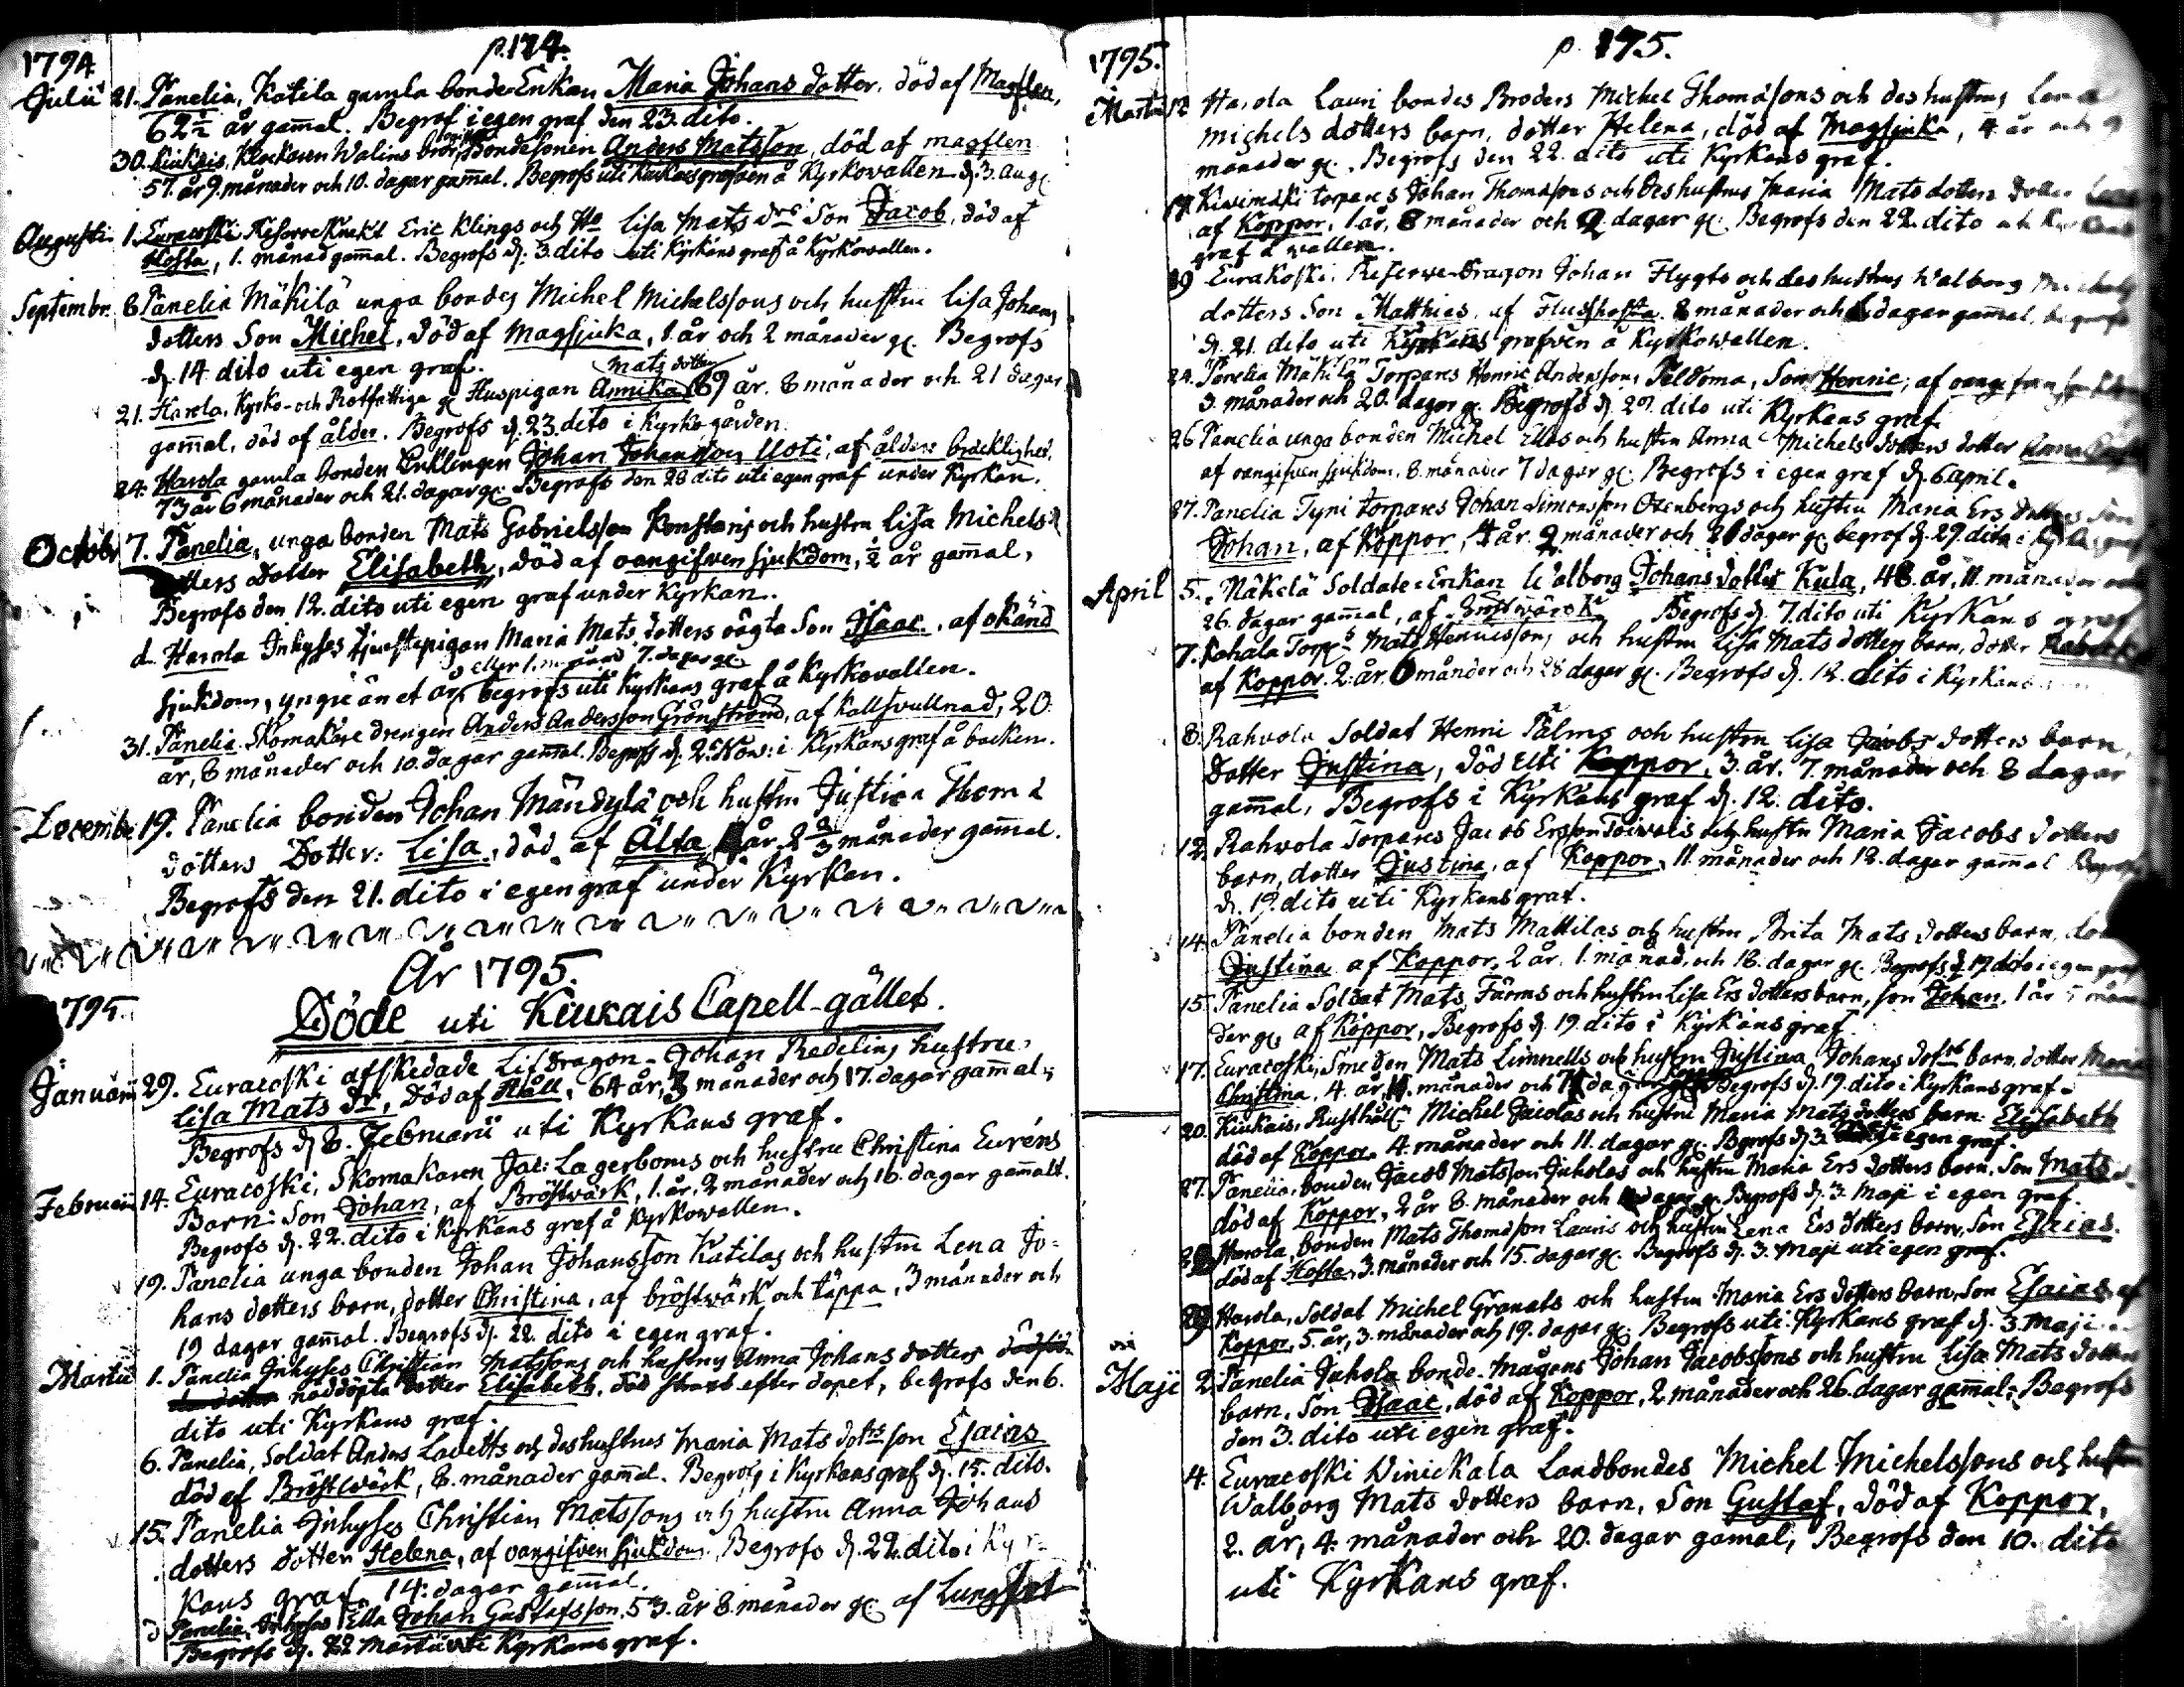 p. 174.
1794
Julii 21. Panelia, Katila gamla bonde-Enkan Maria Johans dotter, död af Magflen,
62 1/2 år gam̄al. Begrof i egen graf den 23. dito.
30. Kiukais, Klockaren Walins bror, Bondesonen Anders Matsson, död af magflen
57. år 9. månader och 10. dagar gam̄al. Begrofs uti Kyrkans grafven å Kyrkovallen d. 3. aug.
Augusti 1. Euracoski Reserve Knekt Eric Klings och Hu Lisa Mats drs Son Jacob, död af
Hosta, 1. månad gam̄al. Begrofs d. 3. dito uti Kyrkans graf å Kyrkovallen.
Septembr. 8. Panelia Mäkilä unga bondes Michel Michelssons och hustru Lisa Johans
dotters Son Michel, död af Magsjuka, 1. år och 2 månader gl. Begrofs
d. 14 dito uti egen graf.
Mats dotter
21. Harola, Kyrko- och Rotfattiga gl Huspigan Annika 69 år. 8 månader och 21 dagar
gam̄al, död af ålder. Begrofs d. 23. dito i Kyrkogården.
24. Harola gamla bonden Enklingen Johan Johansson Uoti, af ålders bräcklighet,
73 år 6 månader och 21. dagar gl. Begrofs den 28 dito uti egen graf under Kyrkan.
Octobr 7. Panelia, unga bonden Mats Gabrielsson Konstaris och hustru Lisa Michels
dotters dotter Elisabeth, död af oangifven sjukdom, 1/2 år gam̄al,
Begrofs den 12. dito uti egen graf under Kyrkan.
d. Harola Inhyses tjenstepigan Maria Mats dotters oägta Son Isaac, af okänd
eller 1. månad 7. dagar gl
sjukdom, yngre än et år, begrofs uti Kyrkans graf å Kyrkovallen.
31. Panelia. Skomakare drengen Anders Andersson Grönström, af Kallsvullnad, 20
år, 8 månader och 10. dagar gam̄al. Begrofs d. 2. Nov: i Kyrkans graf å backen.
Decembr 19. Panelia bonden Johan Mändylä och hustru Justina Thoma
dotters Dotter: Lisa, död af Älta år 2 2/3 månader gam̄al.
Begrofs den 21. dito i egen graf under Kyrkan.
År 1795.
Döde uti Kiukais Capell-gället.
1795.
Januarii 29. Euracoski afskedade Lifdragon Johan Redelins hustru
Lisa Mats dr, död af Håll, 64 år, 3 månader och 17. dagar gam̄al.
Begrofs d. 8. Februarii uti Kyrkans graf.
Februarii 14. Euracoski, Skomakaren Jac: Lagerboms och hustru Christina Euréns
Barn: Son Johan, af Bröstwärk, 1. år, 2 månader och 16. dagar gam̄alt.
Begrofs d. 22. dito i Kyrkans graf å Kyrkowallen.
19. Panelia unga bonden Johan Johansson Katilas och hustru Lena Jo-
hans dotters barn, dotter Christina, af bröstwärk och täppa, 3 månader och
19 dagar gam̄al. Begrofs d. 22. dito i egen graf.
Martii 1. Panelia Inhyses Christian Matssons och hustrus Anna Johans dotters
nöddöpta dotter Elisabeth, död strax efter dopet, begrofs den 6.
dito uti Kyrkans graf.
6. Panelia, Soldat Anders Lavetts och des hustrus Maria Mats dotrs son Esaias
död af Bröstwärk, 8. månader gam̄al. Begrofs i Kyrkans graf d. 15. dito.
15. Panelia Inhyses Christian Matssons och hustru Anna Johans
dotters dotter Helena, af oangifven sjukdom, Begrofs d. 22. dito i Kyr-
kans graf, 14. dagar gam̄al.
d Panelia, Inhyses Ella Johan Gustafsson, 53. år 8. månader gl. af Lungsot
Begrofs d. 22 Martii uti Kyrkans graf.
p. 175.
1795.
Martii 12 Harola Lauri bondes Broders Michel Thomassons och des hustrus Lena
Michels dotters barn, dotter Helena, död af Magsjuka, 4. år och 9
månader gl. Begrofs den 22. dito uti Kyrkans graf.
Kiwimäki torpares Johan Thomassons och des hustrus Maria Mats dotters dotter
af Koppor, 1 år, 8 månader och 2 dagar gl. Begrofs den 22. dito uti Kyrkans
graf å vallen.
19 Eurakoski. Reserve-Dragon Johan Flygts och des hustrus Walborg Michels
dotters Son Matthias, af Flusshosta, 8 månader och dagar gam̄al, begrofs
d. 21. dito uti Kyrkans grafven å Kyrkowallen.
24. Panelia Mäkilä Torpares Henric Anderssons Peldoma, Son Henric, af oangifven
3. månader och 20. dagar gl. Begrofs d. 29. dito uti Kyrkans graf.
26 Panelia unga bonden Michel Ellas och hustru Anna Michels dotters dotter
af oangifven sjukdom, 8. månader 7 dagar gl. Begrofs i egen graf d. 6 April.
27. Panelia Tyni torpares Johan Simonsson Ozenbergs och hustru Maria Ers dotters Son
Johan, af Koppor, 4 år. 2. månader och 20 dagar gl. begrof d. 29. dito i
April 5. Näkelä Soldats-Enkan Walborg Johans dotter Kula, 48. år, 11. månader och
26. dagar gam̄al, af Bröstwärck Begrofs d. 7. dito uti Kyrkans graf
7. Torps Mats Henricsons och hustru Lisa Mats dotters barn, dotter
af Koppor. 2. år. 6 månder och 28 dagar gl. Begrofs d. 12. dito i Kyrkans
8. Rahvola Soldat Henric Palms och hustru Lisa Jacobs dotters barn,
Dotter Justina, död uti Koppor, 3. år. 7. månader och 8 dagar
gam̄al, Begrofs i Kyrkans graf d. 12. dito.
12. Rahvola Torpares Jacob Ersson Toivois och hustru Maria Jacobs dotters
barn, dotter Justina, af Koppor, 11. månader och 12. dagar gam̄al Begrofs
d. 19. dito uti Kyrkans graf.
14. Panelia bonden Mats Mattilas och hustru Brita Mats dotters barn,
Justina af Koppor, 2 år. 1. månad, och 18. dagar gl. Begrofs d. 19 dito i egen graf
15. Panelia Soldat Mats Farms och hustru Lisa Ers dotters barn, son Johan, 1 år 5 måna
der gl. af Koppor, Begrofs d. 19. dito i Kyrkans graf.
17. Euracoski, Smeden Mats Limnells och hustru Justina Johans dotrs barn, dotter Maria
Christina, 4. år, månader och dagar Begrofs d. 19. dito i Kyrkans graf.
20. Kiukais, Rusthåll. Michel Jacolas och hustru Maria Mats dotters barn. Elisabeth
död af Koppor. 4. månader och 11. dagar gl. Begrofs d. 3. i egen graf.
27. Panelia, bonden Jacob Matsson Juholas och hustru Maria Ers dotters barn, Son Mats
död af Koppor, 2 år 8. månader och dagar gl. Begrofs d. 3. Maji i egen graf.
Harola, bonden Mats Thomasson Lauris och hustru Lena Ers dotters barn, Son Esaias.
död af Hosta, 3. månader och 15. dagar gl. Begrofs d. 3. Maji uti egen graf.
29. Harola, Soldat Michel Granats och hustru Maria Ers dotters barn, Son Esaias af
Koppor, 5. år, 3. månader och 19. dagar gl. Begrofs uti Kyrkans graf d. 3. Maji
Maji 2. Panelia Juhola bonde-mågens Johan Jacobssons och hustru Lisa Mats dotters
barn, Son Isaac, död af Koppor, 2 månader och 26. dagar gam̄al; Begrofs
den 3. dito uti egen graf.
4. Euracoski Winickala Landbondes Michel Michelssons och hustru
Walborg Mats dotters barn, Son Gustaf, död af Koppor,
2. år, 4. månader och 20. dagar gamal, Begrofs den 10. dito
uti Kyrkans graf.